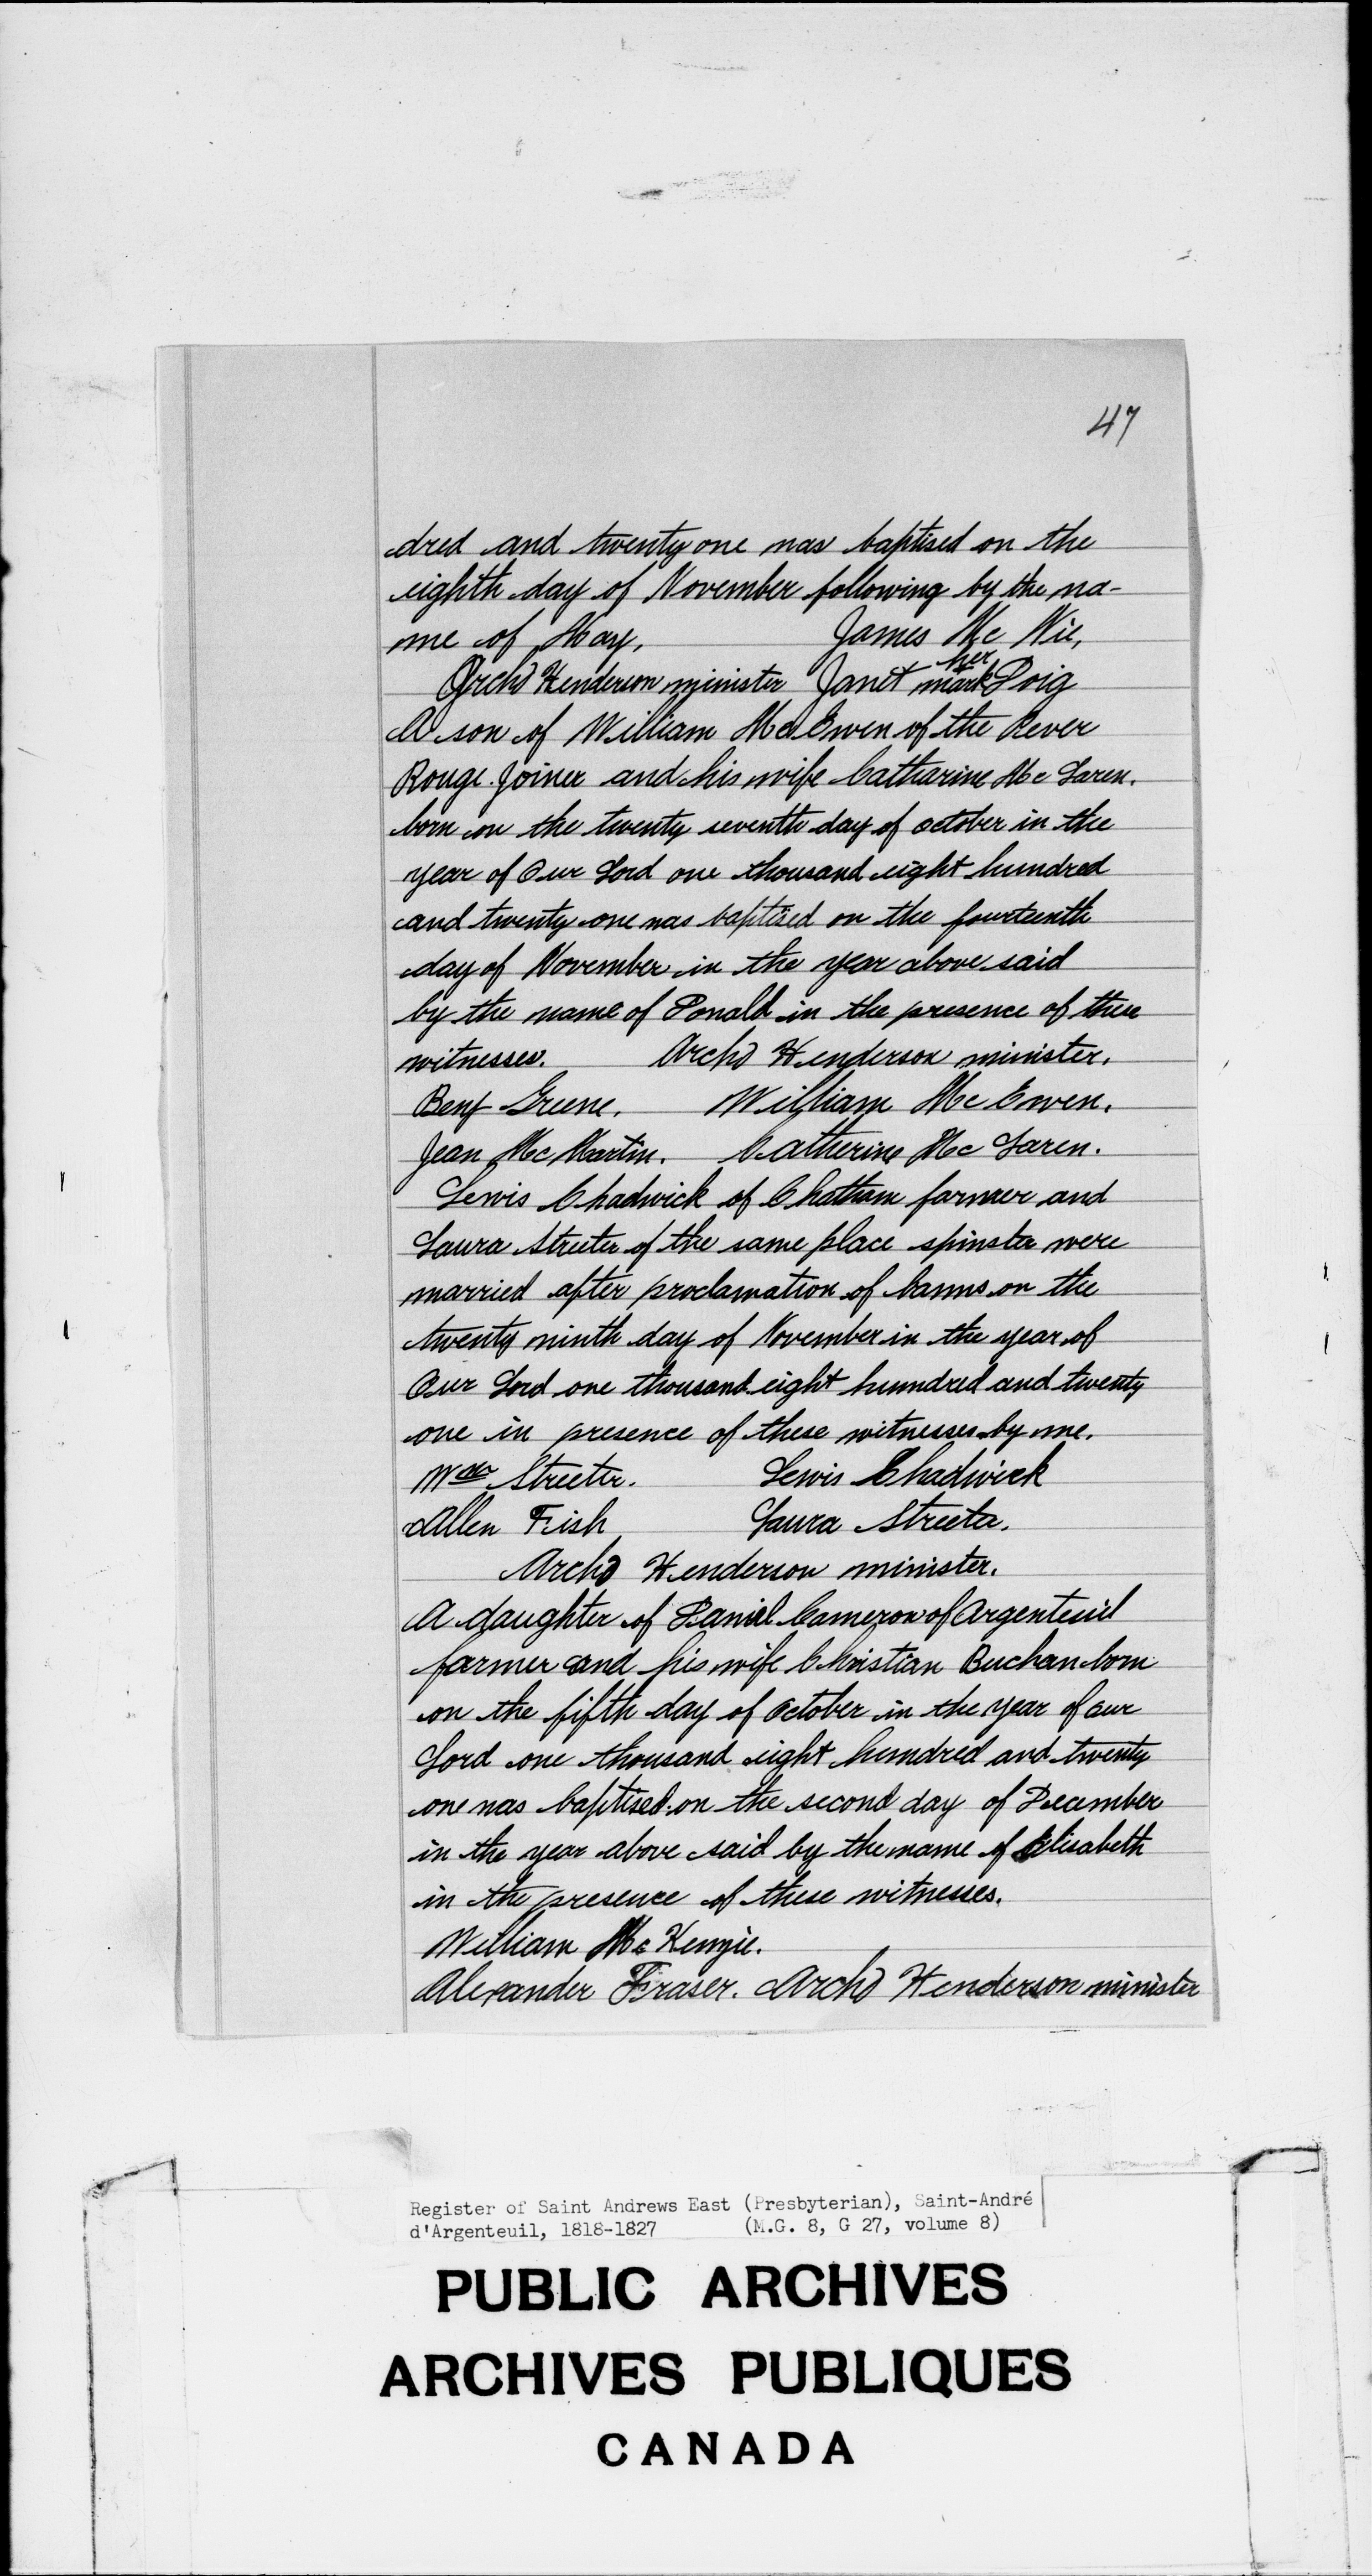 47
dred and twenty one nas baptised on the
eighth day of November following by the na-
me of May, James Mc Nie,
her
Archd Henderson minister Janet mark Doig
A son of William McEwen of the River
Rouge Joiner and his wife Catharine Mc Laren.
born on the twenty seventh day of october in the
year of Our Lord one thousand eight hundred
and twenty one nas baptised on the fourteenth
day of November in the year above said
by the name of Donald in the presence of these
witnesses. Archd Henderson minister.
Benj Greene. William Mc Ewen.
Jean Mc Martin. Catherine Mc Laren.
Lewis Chadwick of Chatham farmer and
Laura Streeter of the same place spinster were
married after proclamation of banns on the
twenty ninth day of November in the year of
Our Lord one thousand eight hunndred and twenty
one in presence of these witnesses by me.
Wm Streeter. Lewis Chadwick
Allen Fish Laura Streeter.
Archd Henderson minister.
A daughter of Daniel Cameron of Argenteuil
farmer and his wife Christian Buchan born
on the fifth day of October in the year of our
Lord one thousand eight hundred and twenty
one nas baptised on the second day of December
in the year above said by the name of Elisabeth
in the presence of these witnesses.
William Mc Kenzie.
Alexander Fraser. Archd Henderson minister
Register of Saint Andrews East (Presbyterian), Saint-André
d'Argenteuil, 1818-1827 (M.G. 8, G 27, volume 8)
PUBLIC ARCHIVES
ARCHIVES PUBLIQUES
CANADA